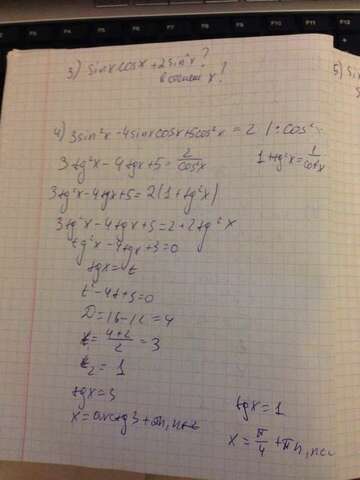 F5 F6 F7 F8 F9 F10 F11 F12
3) sinx cosx + 2 sin²x ?
в ответ x ?
5) sin
4) 3sin²x - 4sinxcosx + 5cos²x = 2 | : cos²x
3tg²x - 4tgx + 5 = 2/cos²x 1 + tg²x = 1/cos²x
3tg²x - 4tgx + 5 = 2(1 + tg²x)
3tg²x - 4tgx + 5 = 2 + 2tg²x
tg²x - 4tgx + 3 = 0
tgx = t
t² - 4t + 3 = 0
D = 16 - 12 = 4
t = (4+2)/2 = 3
t₂ = 1
tgx = 3 tgx = 1
x = arctg3 + πn, n∈z x = π/4 + πn, n∈